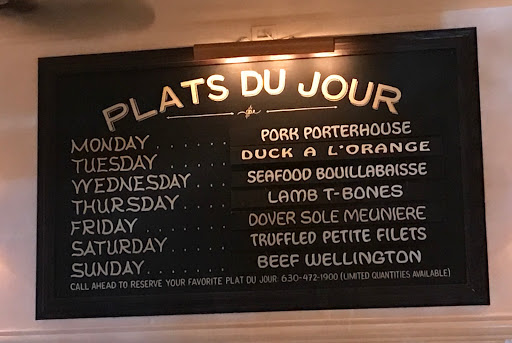 PLATS DU JOUR
MONDAY . . . . . . PORK PORTERHOUSE
TUESDAY . . . . . . DUCK A L'ORANGE
WEDNESDAY . . . . SEAFOOD BOUILLABAISSE
THURSDAY . . . . . LAMB T-BONES
FRIDAY . . . . . . . DOVER SOLE MEUNIERE
SATURDAY . . . . . TRUFFLED PETITE FILETS
SUNDAY . . . . . . BEEF WELLINGTON
CALL AHEAD TO RESERVE YOUR FAVORITE PLAT DU JOUR: 630-472-1900 (LIMITED QUANTITIES AVAILABLE)